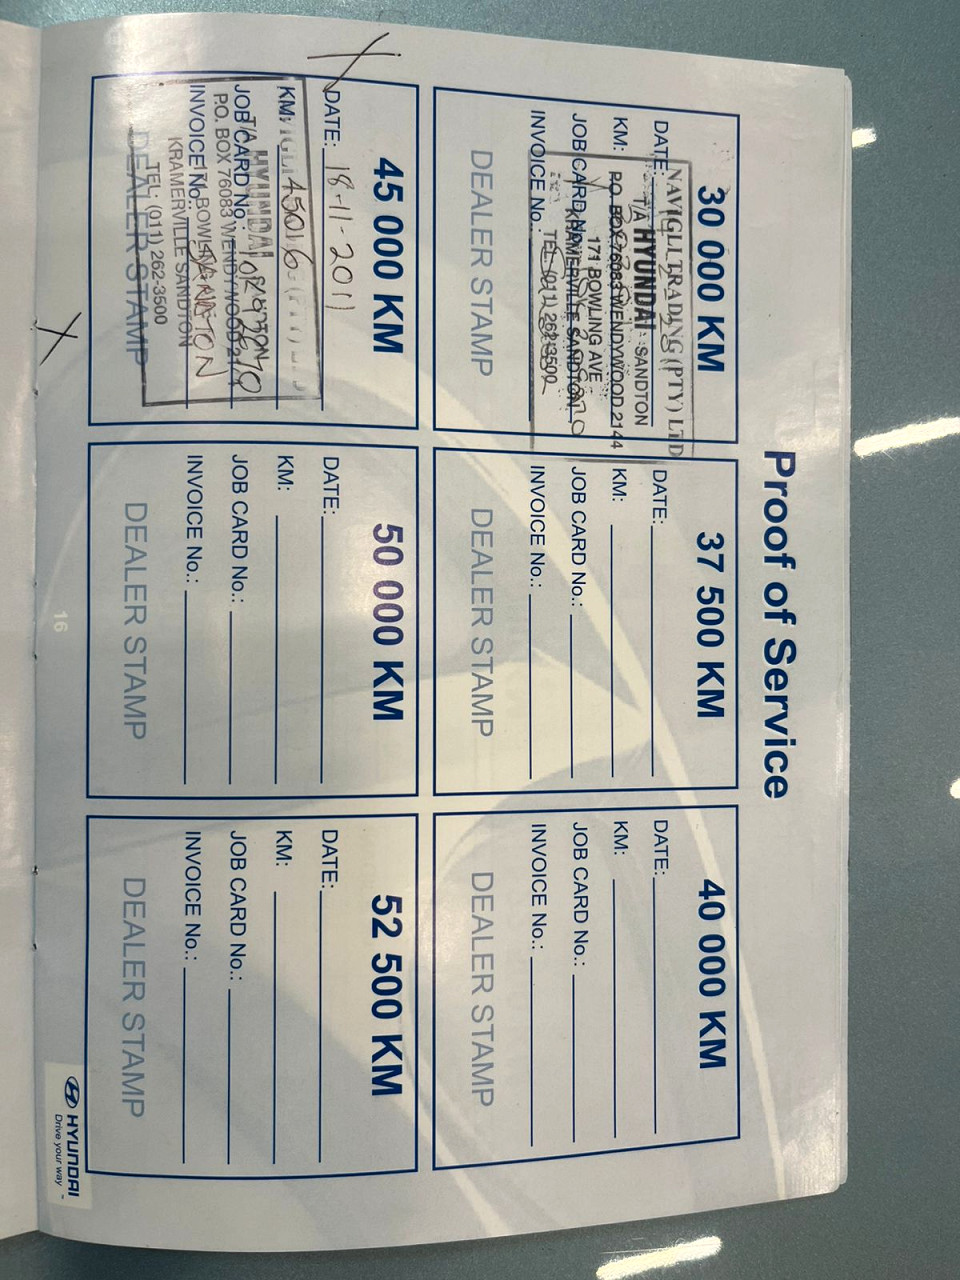 Proof of Service
30 000 KM
DATE:
KM:
JOB CARD No.:
INVOICE No.:
DEALER STAMP
NAVIGLI TRADING (PTY) LTD
T/A HYUNDAI SANDTON
P.O. BOX 76083 WENDYWOOD 2144
171 BOWLING AVE
KRAMERVILLE SANDTON
TEL: (011) 262-3500
37 500 KM
DATE:
KM:
JOB CARD No.:
INVOICE No.:
DEALER STAMP
40 000 KM
DATE:
KM:
JOB CARD No.:
INVOICE No.:
DEALER STAMP
45 000 KM
DATE: 18-11-2011
KM: 45016
JOB CARD No.:
INVOICE No.: SANDTON
DEALER STAMP
T/A HYUNDAI
P.O. BOX 76083 WENDYWOOD
171 BOWLING
KRAMERVILLE SANDTON
TEL: (011) 262-3500
50 000 KM
DATE:
KM:
JOB CARD No.:
INVOICE No.:
DEALER STAMP
52 500 KM
DATE:
KM:
JOB CARD No.:
INVOICE No.:
DEALER STAMP
16
HYUNDAI
Drive your way